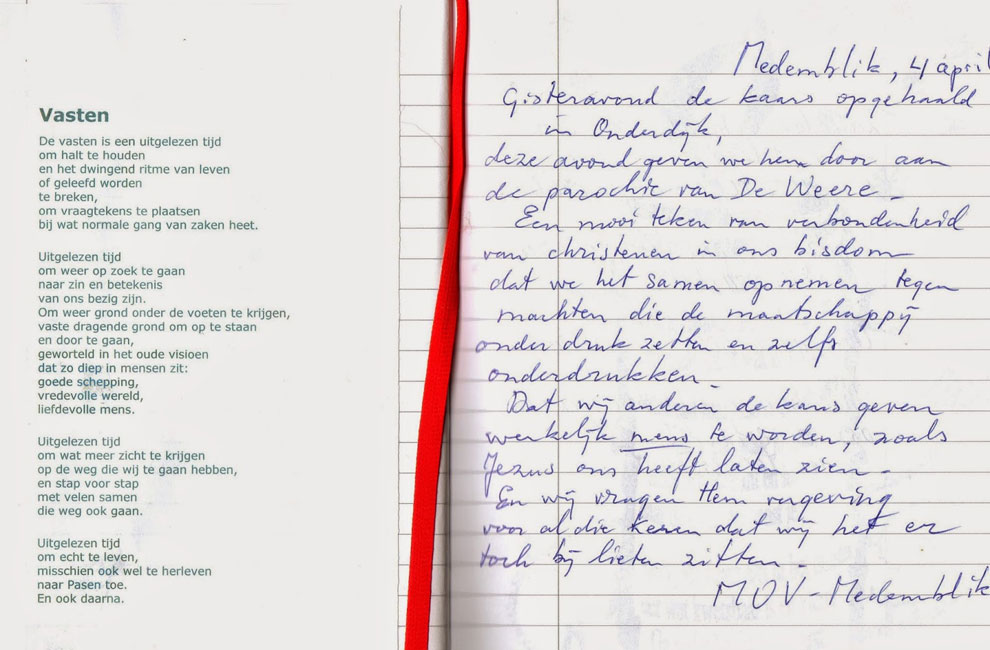 Vasten
De vasten is een uitgelezen tijd
om halt te houden
en het dwingend ritme van leven
of geleefd worden
te breken,
om vraagtekens te plaatsen
bij wat normale gang van zaken heet.
Uitgelezen tijd
om weer op zoek te gaan
naar zin en betekenis
van ons bezig zijn.
Om weer grond onder de voeten te krijgen,
vaste dragende grond om op te staan
en door te gaan,
geworteld in het oude visioen
dat zo diep in mensen zit:
goede schepping,
vredevolle wereld,
liefdevolle mens.
Uitgelezen tijd
om wat meer zicht te krijgen
op de weg die wij te gaan hebben,
en stap voor stap
met velen samen
die weg ook gaan.
Uitgelezen tijd
om echt te leven,
misschien ook wel te herleven
naar Pasen toe.
En ook daarna.
Medemblik, 4 april
Gisteravond de kaars opgehaald
in Onderdijk,
deze avond geven we hem door aan
de parochie van De Weere.
Een mooi teken van verbondenheid
van christenen in ons bisdom
dat we het samen opnemen tegen
machten die de maatschappij
onder druk zetten en zelfs
onderdrukken.
Dat wij anderen de kans geven
werkelijk mens te worden, zoals
Jezus ons heeft laten zien.
En wij vragen Hem vergeving
voor al die keren dat wij het er
toch bij lieten zitten.
MOV-Medemblik